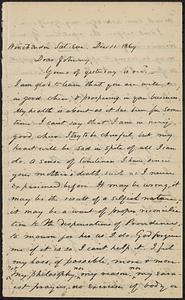 Winchendon Sat. eve Dec. 11. 1869
Dear Johnny,
Yours of yesterday is rec'd.
I am glad to learn that you are well &
in good cheer & prospering in your business.
My health is about as it has been for some
time. I can't say that I am in very
good cheer. I try to be cheerful, but my
heart will be sad in spite of all I can
do. A sense of loneliness I have since
your mother's death such as I never
experienced before. It may be wrong, it
may be the result of a selfish nature, it
may be a want of proper reconcilia-
tion to the dispensations of Providence,
to mourn for her as I do. God forgive
if it is so. I can't help it. I feel
my loss, if possible, more & more
My philosophy, my reason, my ear-
nest prayers, no exercise of body or